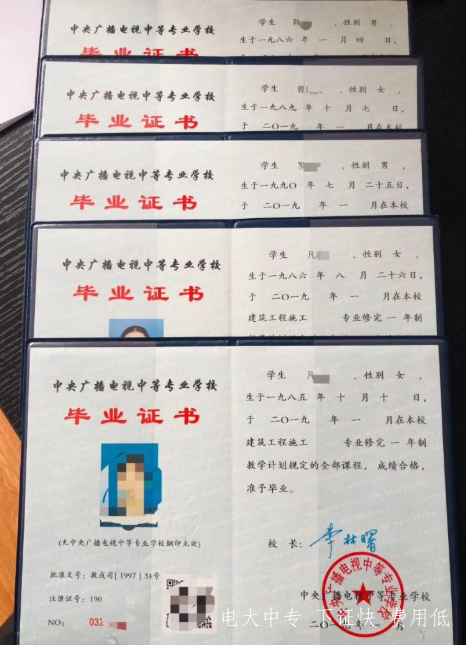 中央广播电视中等专业学校
毕业证书
学生 ，性别 男，
生于一九八六 年 一 月 四 日，
于 二〇一九 年 一 月在本校
中央广播电视中等专业学校
毕业证书
学生 ，性别 女，
生于一九八九 年 十 月 七 日，
于 二〇一九 年 一 月在本校
中央广播电视中等专业学校
毕业证书
学生 ，性别 男，
生于一九九〇 年 七 月 二十五日，
于 二〇一九 年 一 月在本校
中央广播电视中等专业学校
毕业证书
学生 凡 ，性别 女，
生于一九八六 年 八 月 二十六日，
于 二〇一九 年 一 月在本校
建筑工程施工 专业修完 一 年制
中央广播电视中等专业学校
毕业证书
(无中央广播电视中等专业学校钢印无效)
批准文号：教成司[ 1997 ] 34号
注册证号：190
NO： 032
学生 凡 ，性别 女，
生于一九八五 年 十 月 十 日，
于 二〇一九 年 一 月在本校
建筑工程施工 专业修完 一 年制
教学计划规定的全部课程，成绩合格，
准予毕业。
校 长： 李林曙
中央广播电视中等专业学校
中央广播电视中等专业学校
二〇一 月
电大中专 下证快 费用低